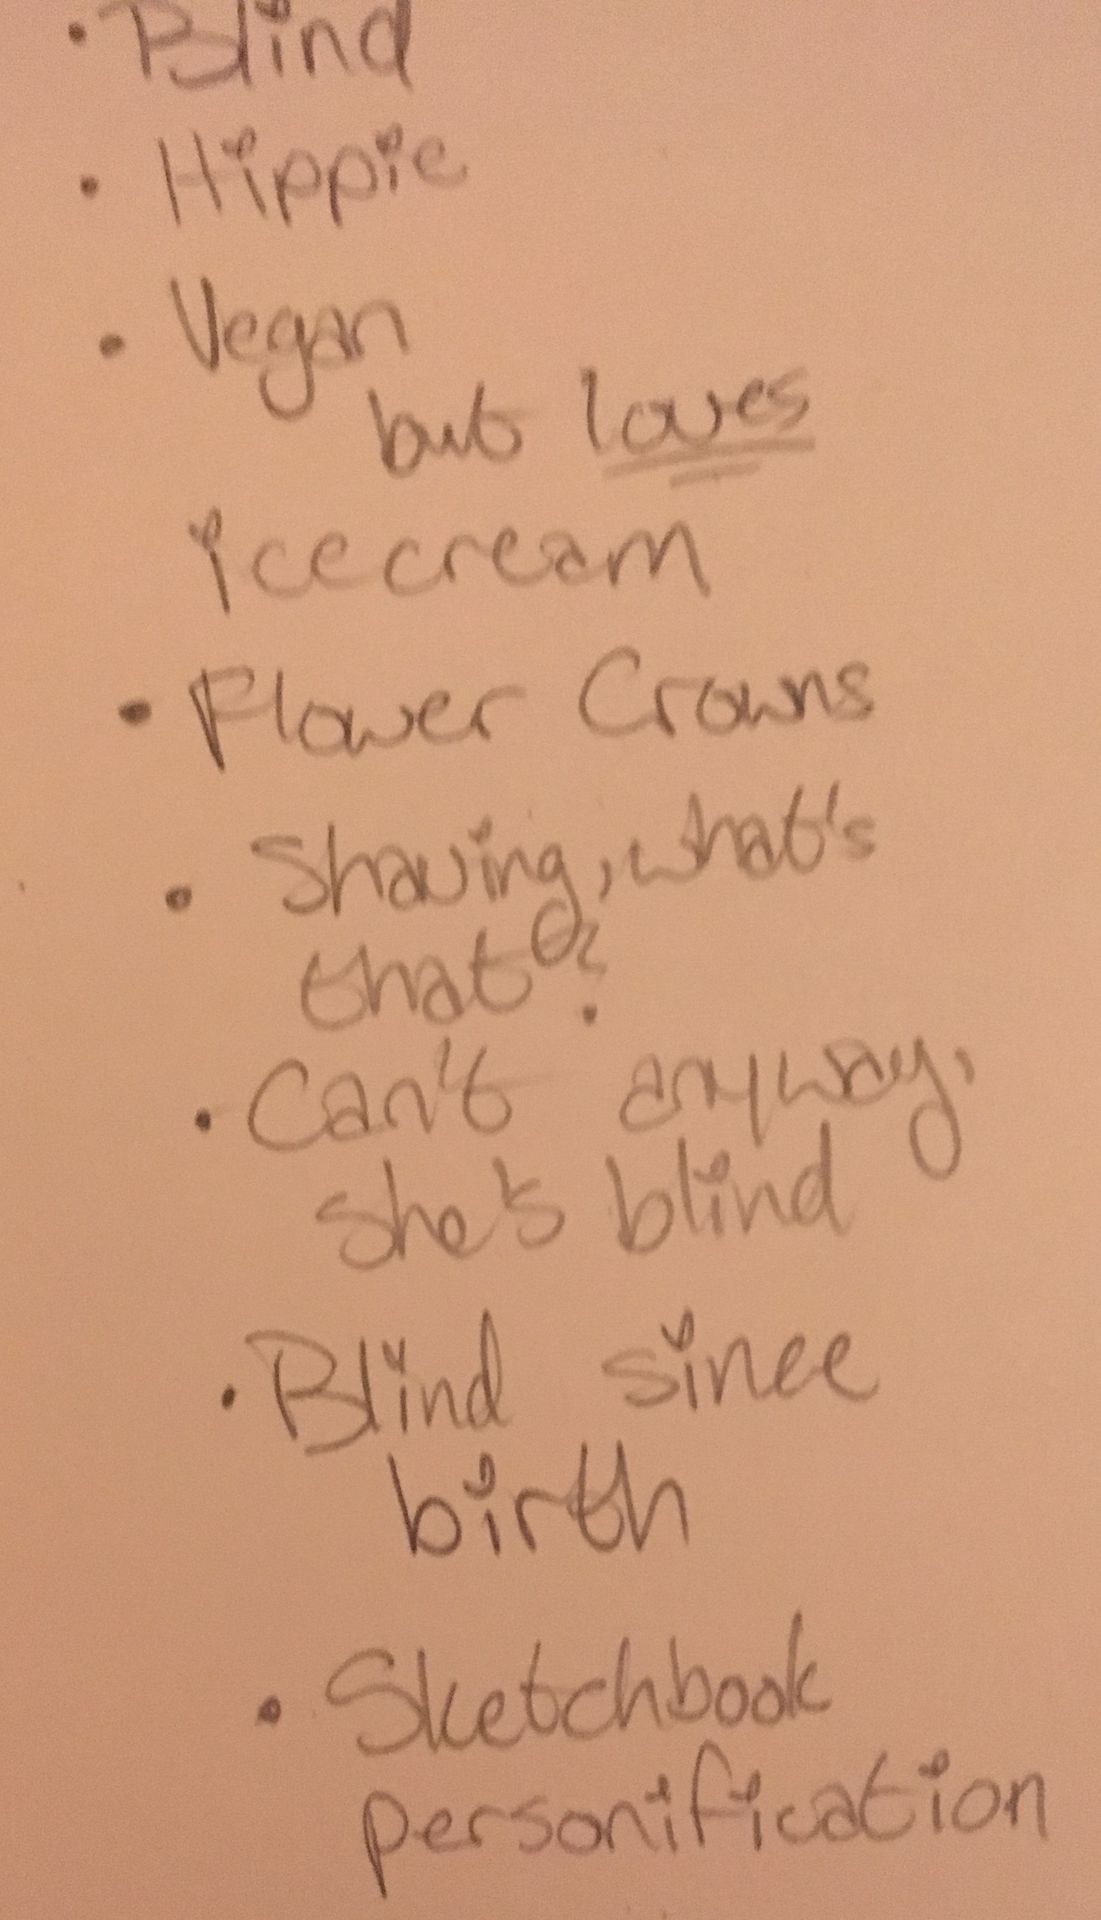 • Blind
• Hippie
• Vegan
but loves
icecream
• Flower Crowns
• Shaving, what's
that?
• Can't anyway,
she's blind
• Blind since
birth
• Sketchbook
personification